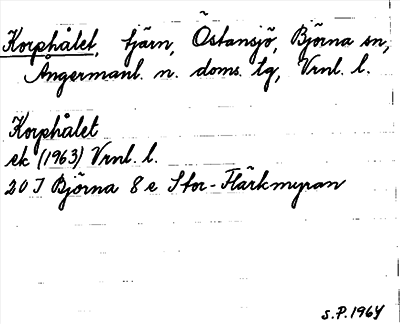 Korphålet, tjärn, Östansjö, Björna sn,
Ångermanl. n. doms. lg, Vrnl. l.
Korphålet
ek (1963) Vrnl. l.
20 I Björna 8 e Stor-Flärkmyran
S.P. 1964